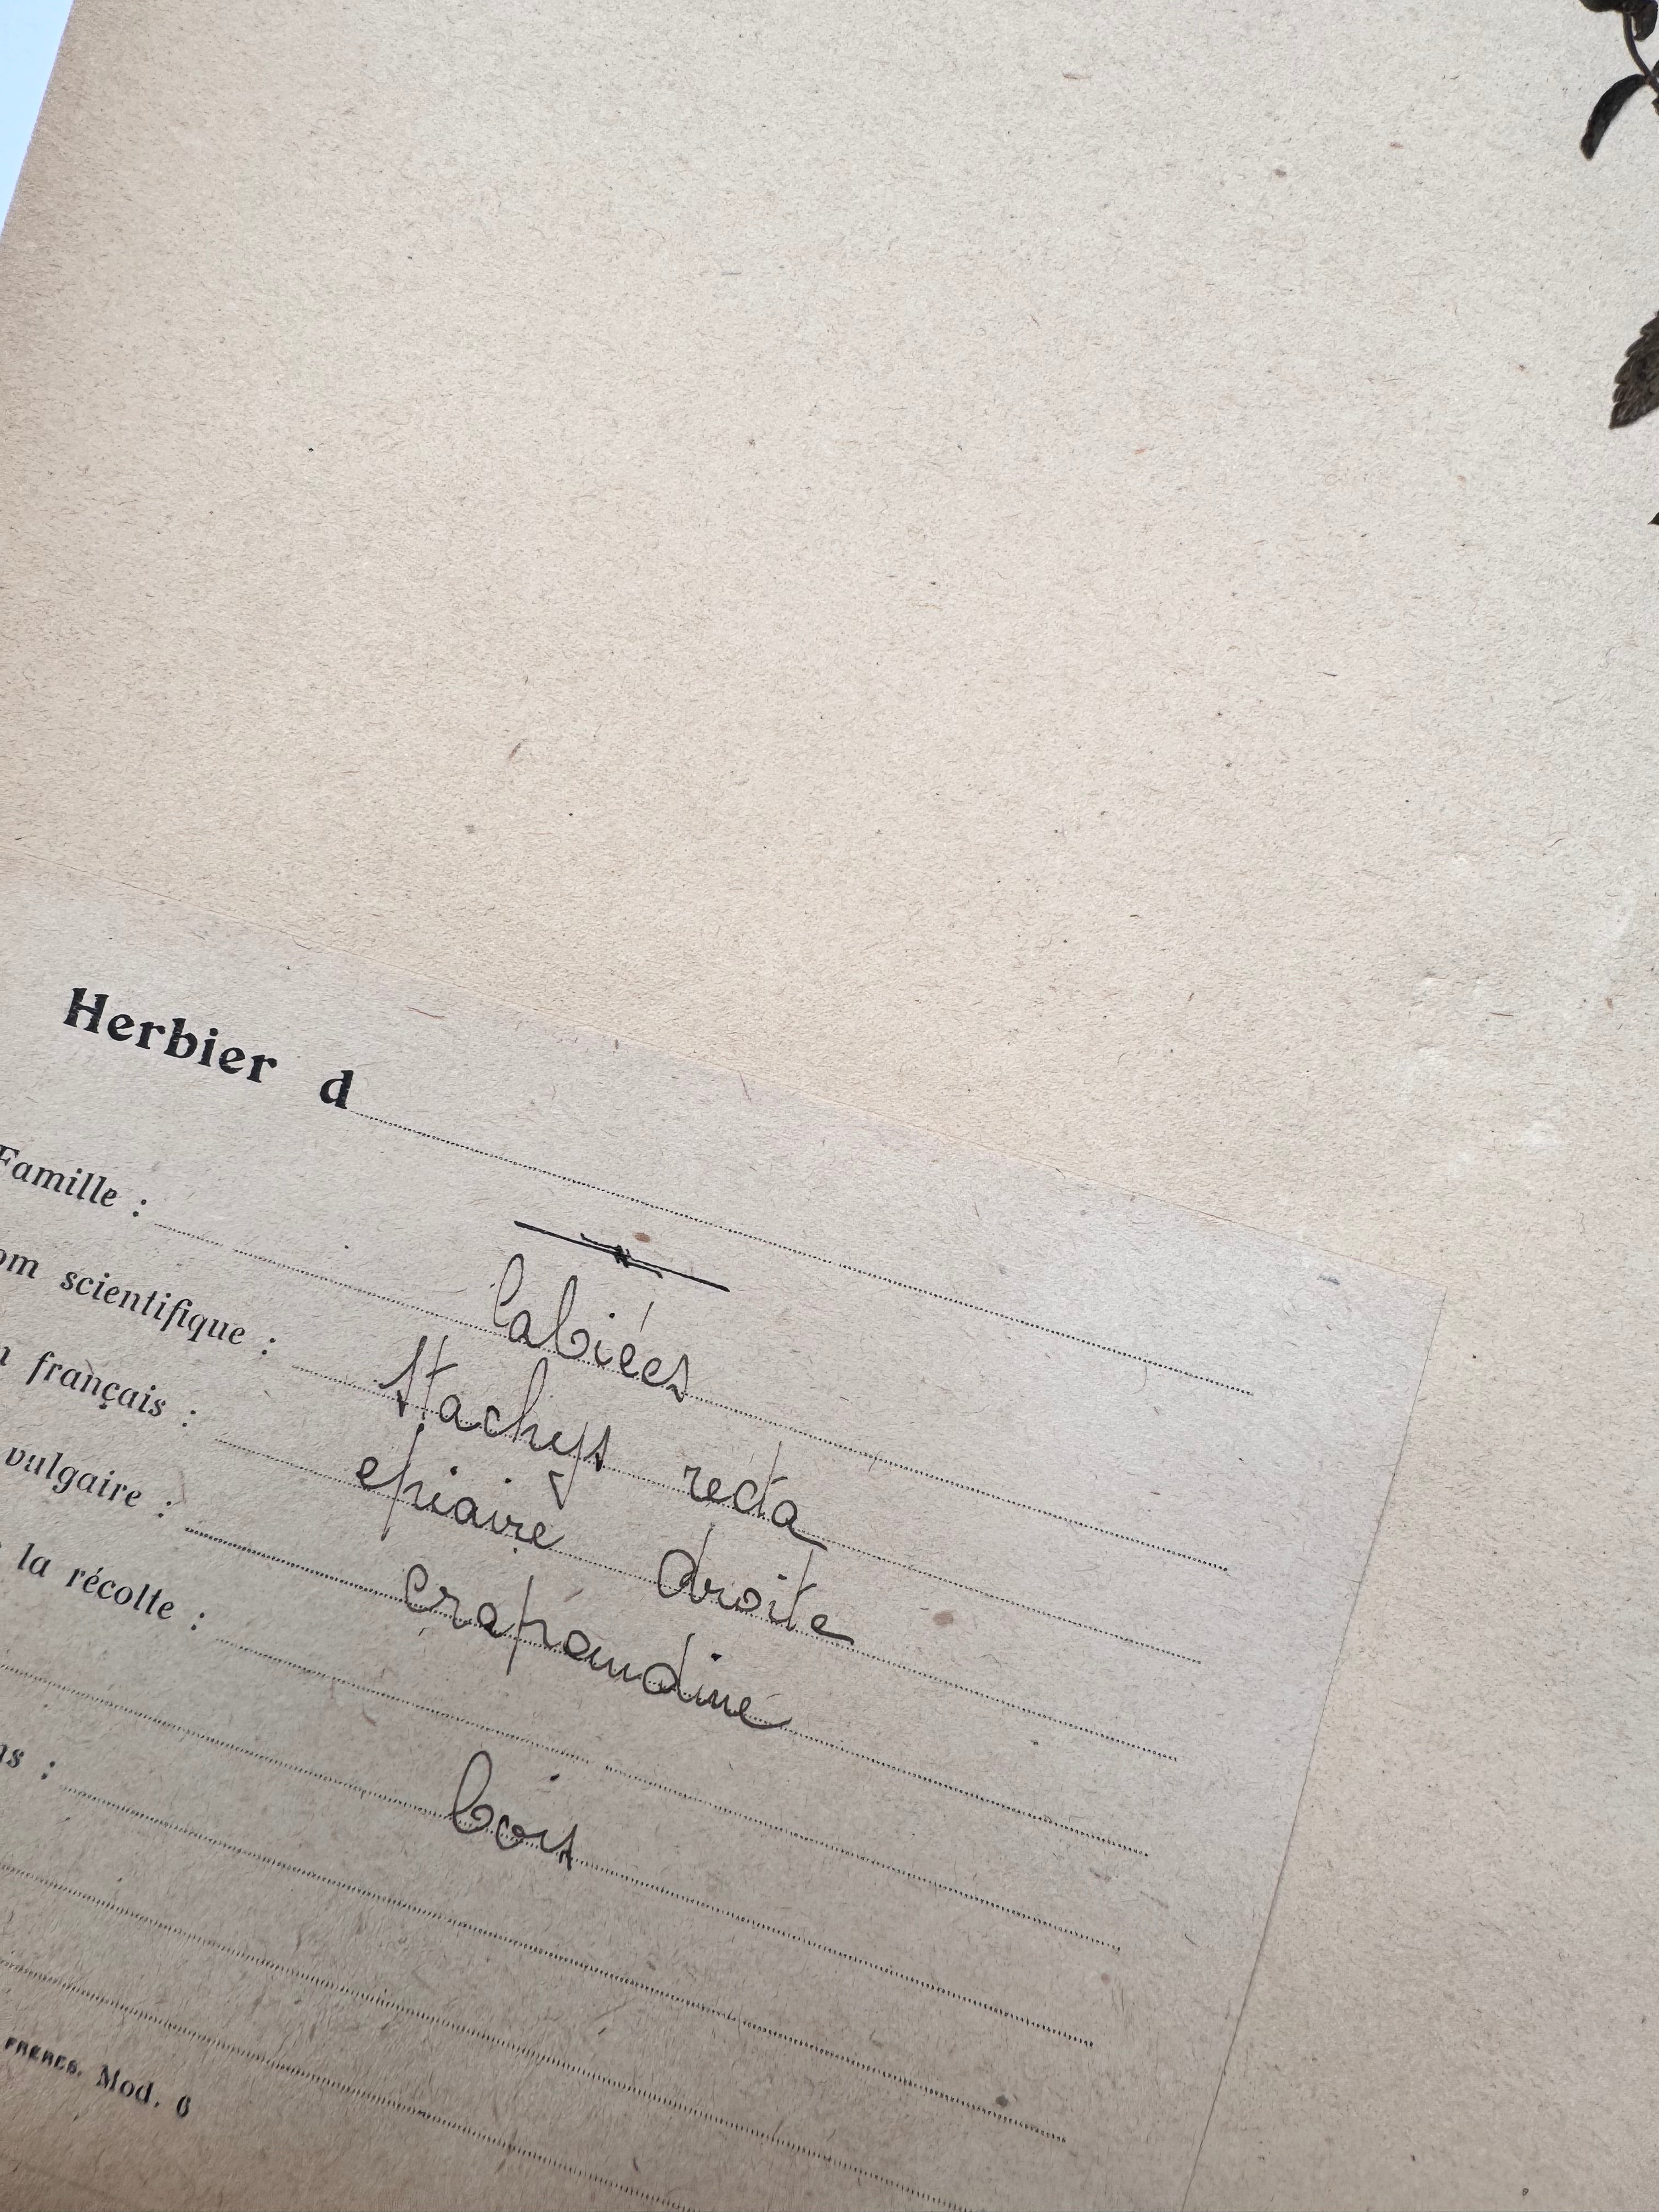 Herbier d
Famille : Labiées
om scientifique : Stachys recta
français : epiaire droite
vulgaire : crapaudine
la récolte :
bois
ns :
FRERES. Mod. 6